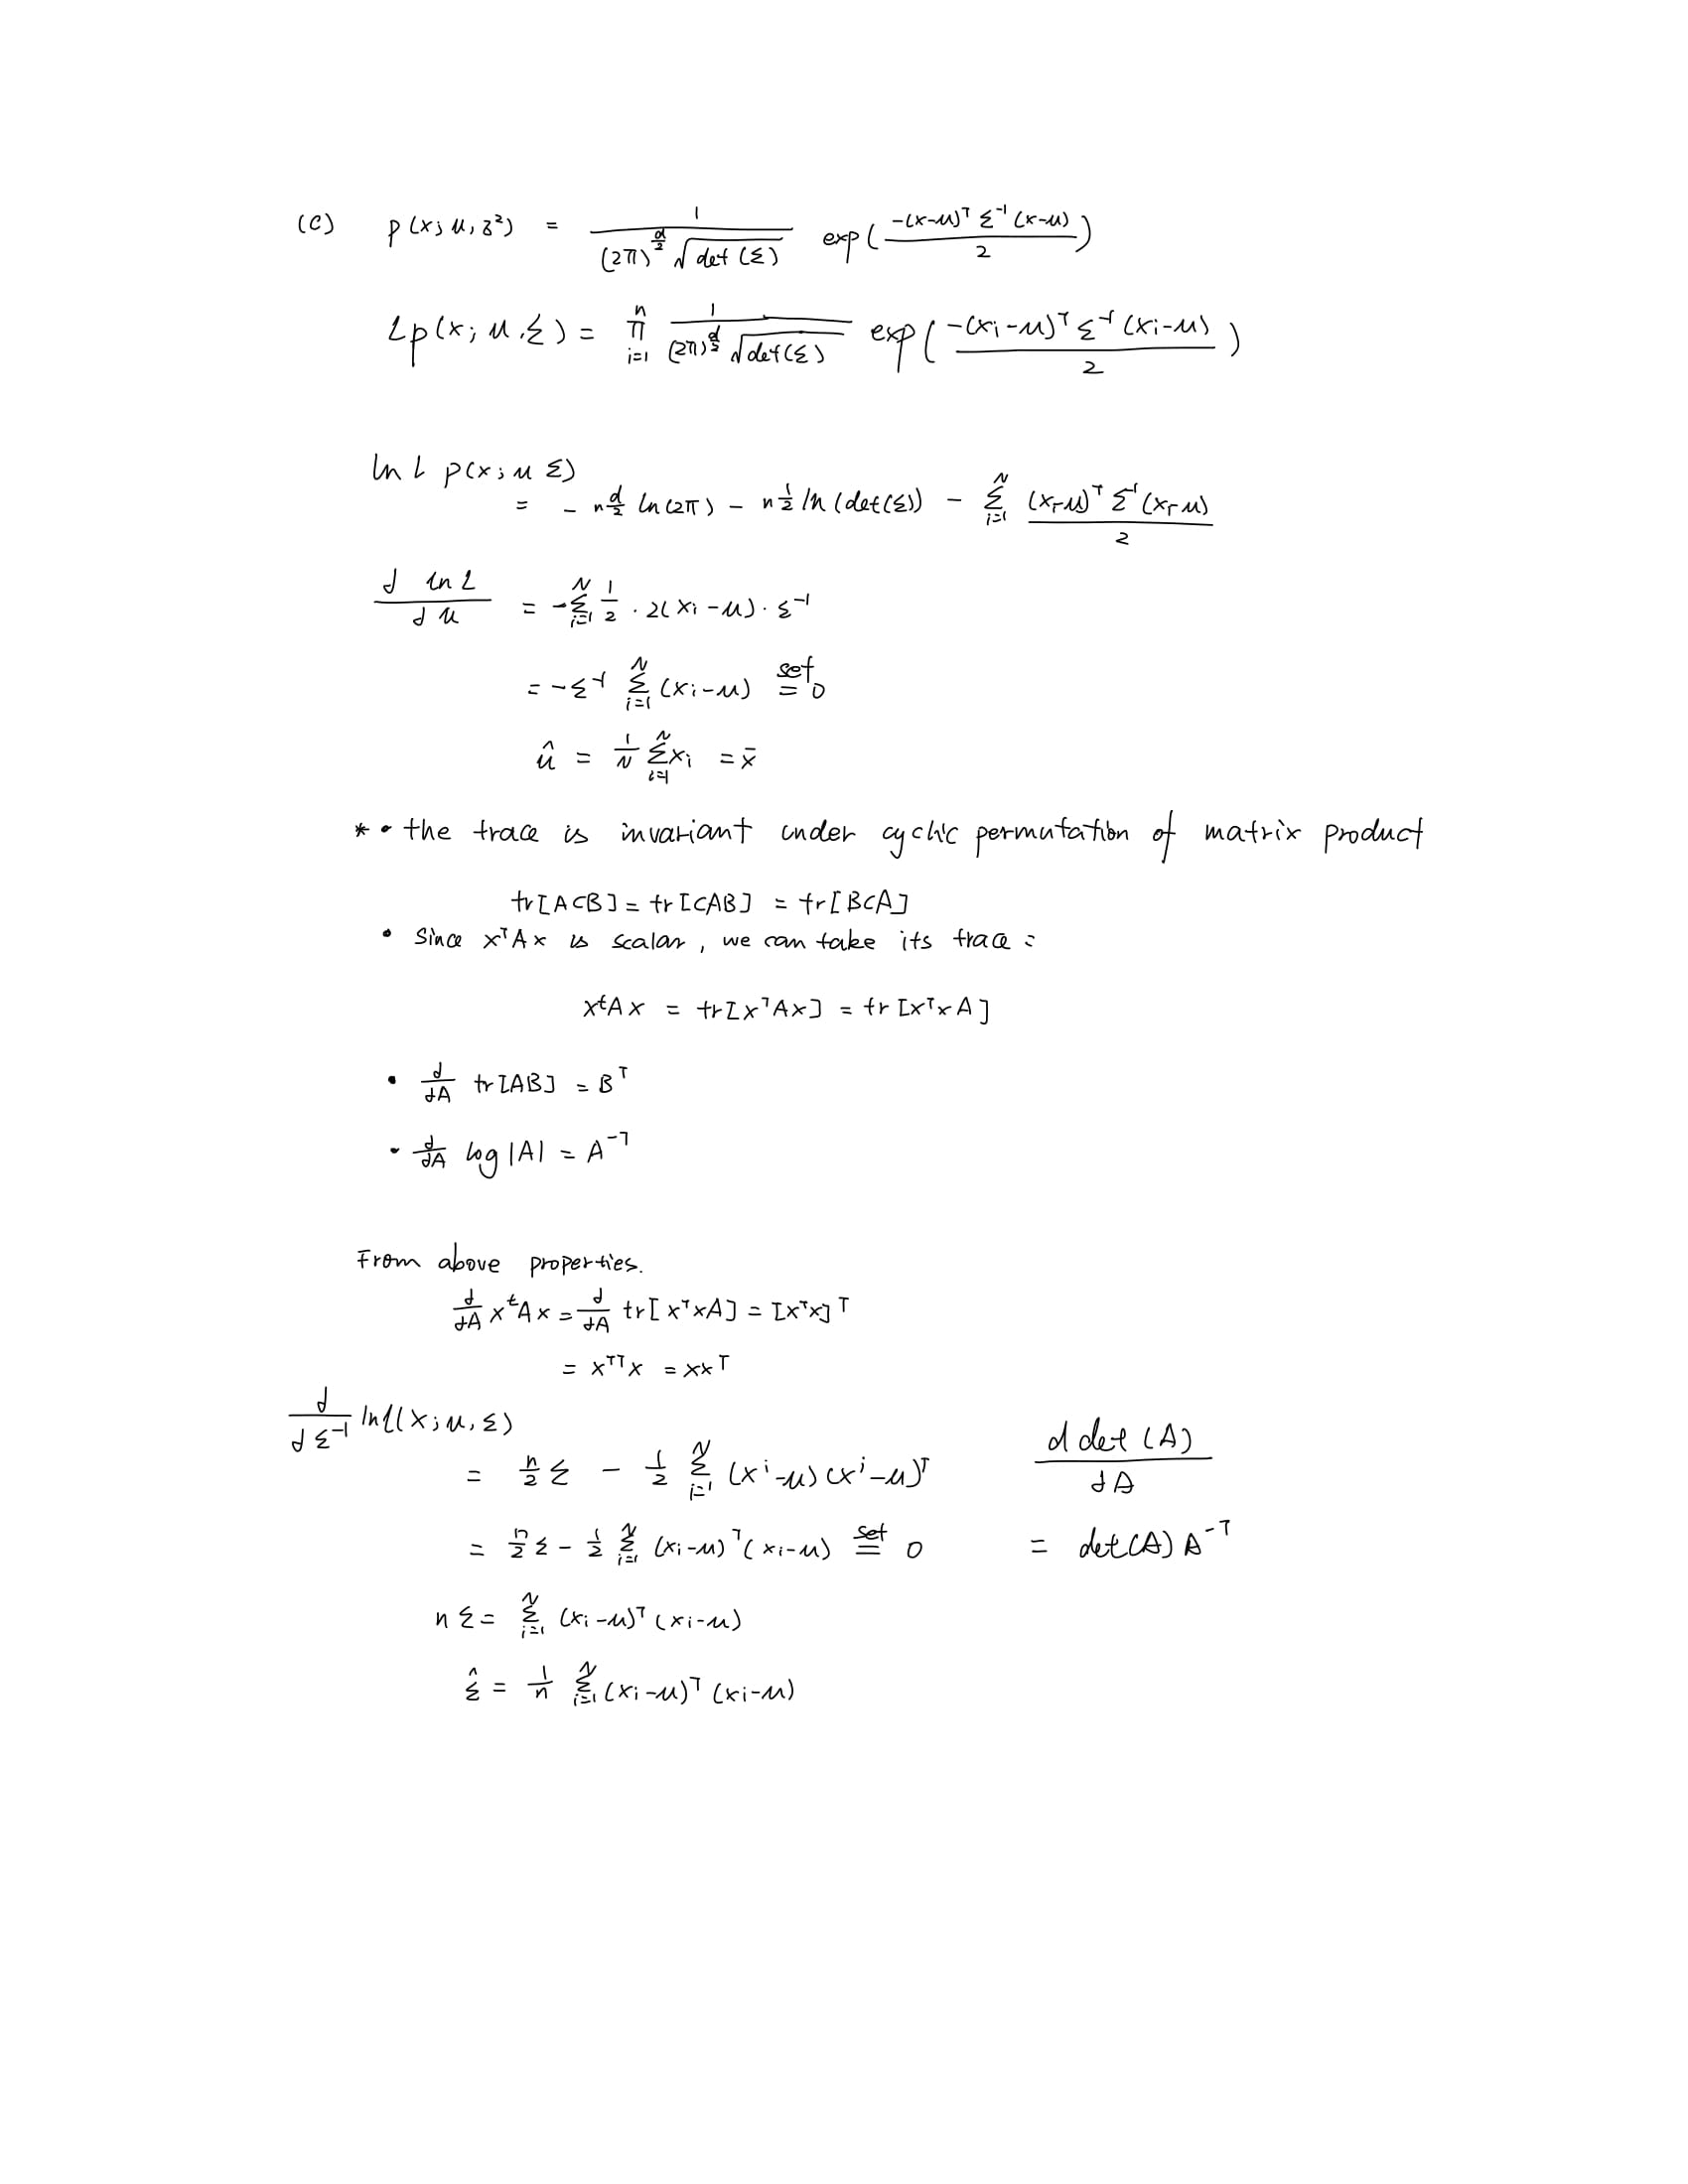 (c) p(x; μ, σ²) = 1 / ((2π)^(d/2) √det(Σ)) exp( -(x-μ)ᵀ Σ⁻¹ (x-μ) / 2 )
Lp(x; μ, Σ) = ∏_{i=1}^{n} 1 / ((2π)^(d/2) √det(Σ)) exp( -(xi-μ)ᵀ Σ⁻¹ (xi-μ) / 2 )
ln L p(x; μ Σ)
= - n d/2 ln(2π) - n 1/2 ln(det(Σ)) - Σ_{i=1}^{N} (xi-μ)ᵀ Σ⁻¹ (xi-μ) / 2
d ln L / d μ = -Σ_{i=1}^{N} 1/2 · 2(xi-μ) · Σ⁻¹
= -Σ⁻¹ Σ_{i=1}^{N} (xi-μ) set = 0
û = 1/N Σ_{i=1}^{N} xi = x̄
* • the trace is invariant under cyclic permutation of matrix product
tr[ACB] = tr[CAB] = tr[BCA]
• Since xᵀAx is scalar, we can take its trace :
xᵗAx = tr[xᵀAx] = tr[xᵀxA]
• d/dA tr[AB] = Bᵀ
• d/dA log|A| = A⁻ᵀ
From above properties.
d/dA xᵗAx = d/dA tr[xᵀxA] = [xᵀx]ᵀ
= xᵀᵀx = xxᵀ
d/dΣ⁻¹ ln L(x; μ, Σ)
= n/2 Σ - 1/2 Σ_{i=1}^{N} (xⁱ-μ)(xⁱ-μ)ᵀ
= n/2 Σ - 1/2 Σ_{i=1}^{N} (xi-μ)ᵀ(xi-μ) set = 0
n Σ = Σ_{i=1}^{N} (xi-μ)ᵀ(xi-μ)
Σ̂ = 1/n Σ_{i=1}^{N} (xi-μ)ᵀ(xi-μ)
d det(A) / dA
= det(A) A⁻ᵀ